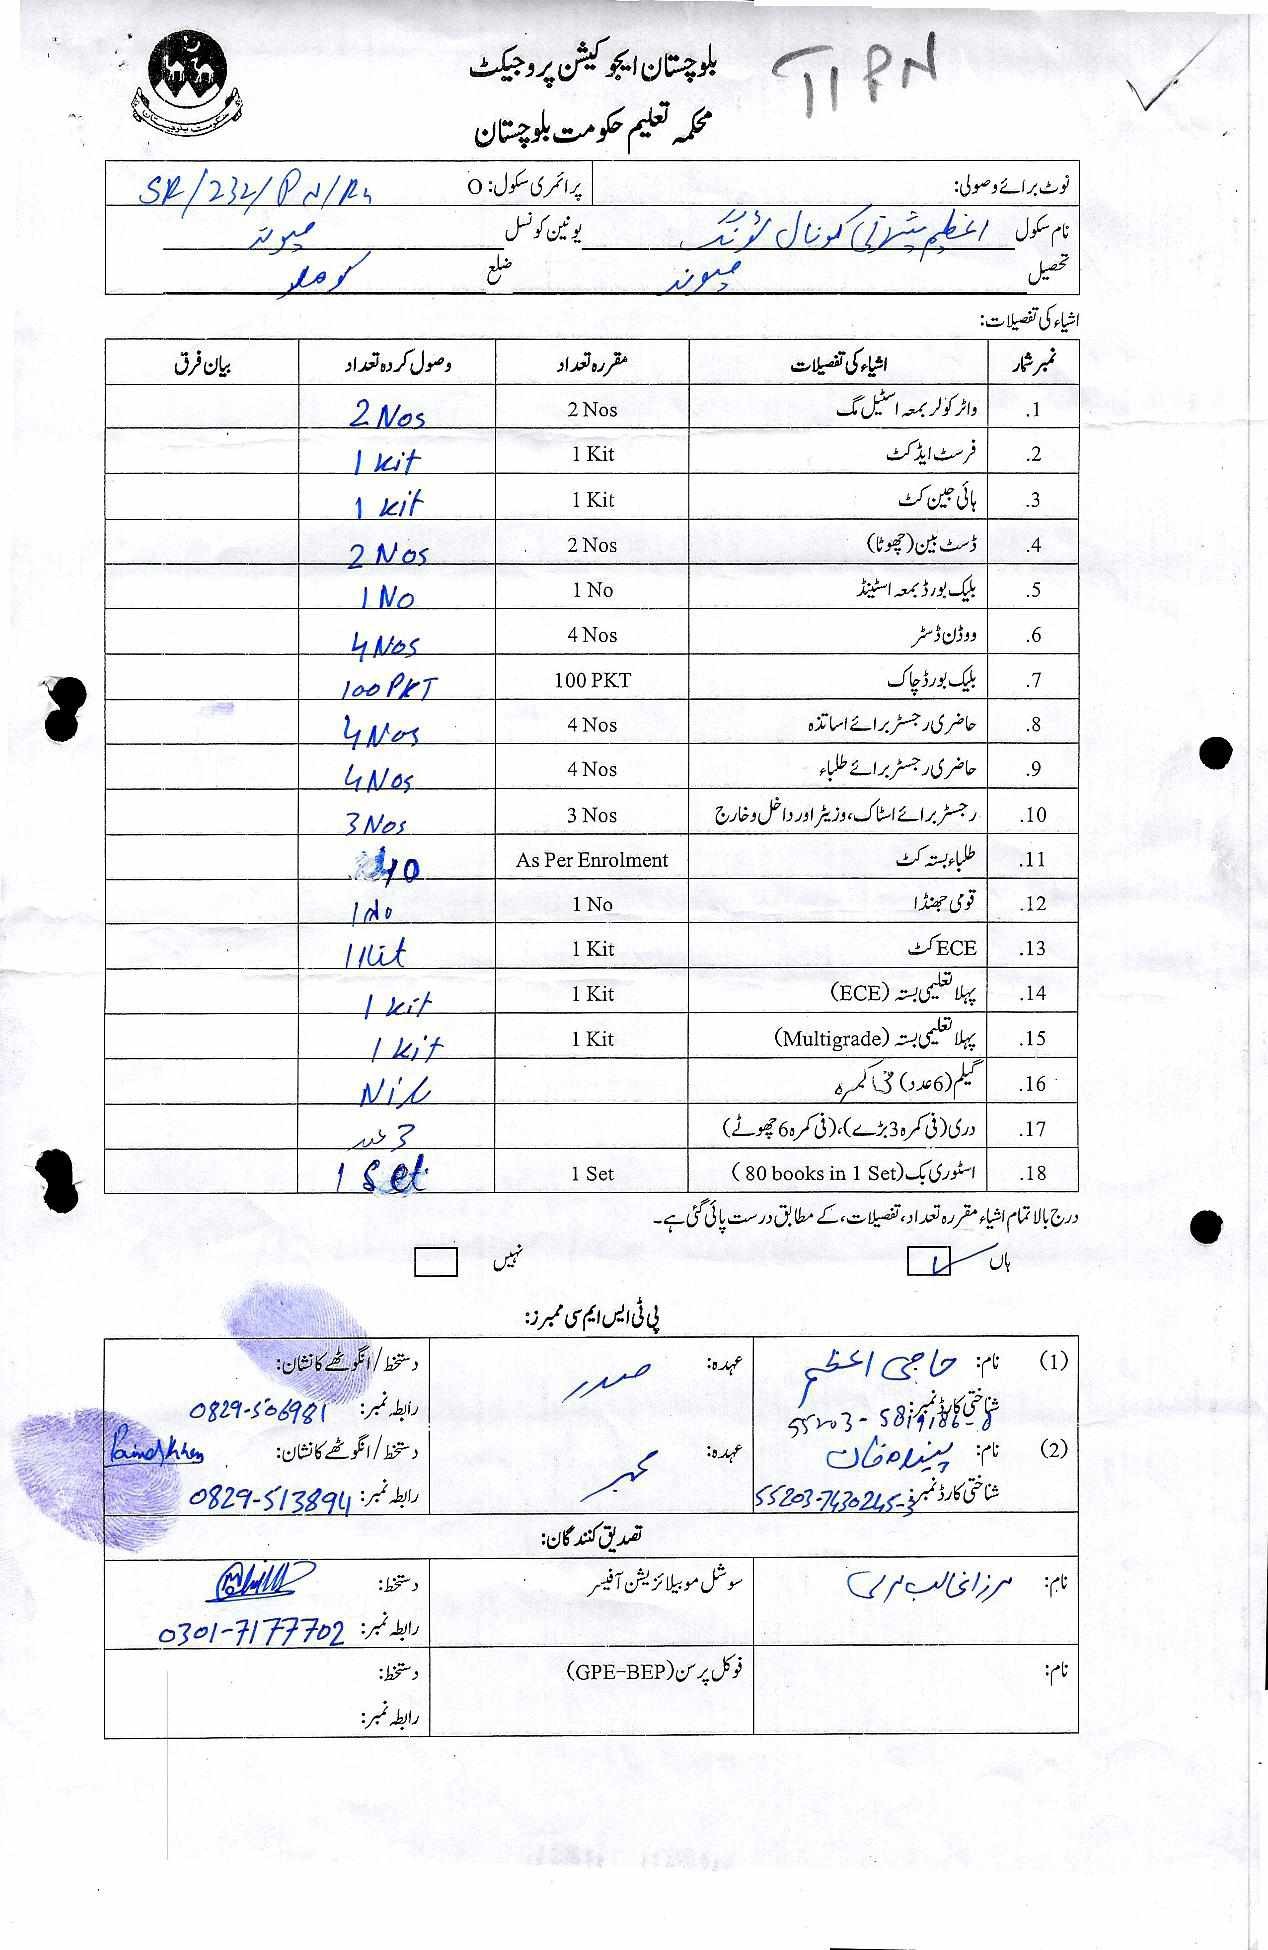 TIPN
بلوچستان ایجوکیشن پروجیکٹ
محکمہ تعلیم حکومت بلوچستان
حکومت بلوچستان
نوٹ برائے وصولی: پرائمری سکول: O SR/232/PN/
نام سکول اعظم یونین کونسل میوند
تحصیل میوند ضلع کوہلو
اشیاء کی تفصیلات:
نمبر شمار اشیاء کی تفصیلات مقررہ تعداد وصول کردہ تعداد بیان فرق
1. واٹر کولر بمعہ اسٹیل مگ 2 Nos 2 Nos
2. فرسٹ ایڈ کٹ 1 Kit 1 Kit
3. ہائی جین کٹ 1 Kit 1 Kit
4. ڈسٹ بین (چھوٹا) 2 Nos 2 Nos
5. بلیک بورڈ بمعہ اسٹینڈ 1 No 1 No
6. ووڈن ڈسٹر 4 Nos 4 Nos
7. بلیک بورڈ چاک 100 PKT 100 PKT
8. حاضری رجسٹر برائے اساتذہ 4 Nos 4 Nos
9. حاضری رجسٹر برائے طلباء 4 Nos 4 Nos
10. رجسٹر برائے اسٹاک، وزیٹر اور داخل و خارج 3 Nos 3 Nos
11. طلباء بستہ کٹ As Per Enrolment 40
12. قومی جھنڈا 1 No 1 No
13. ECE کٹ 1 Kit 1 Kit
14. پہلا تعلیمی بستہ (ECE) 1 Kit 1 Kit
15. پہلا تعلیمی بستہ (Multigrade) 1 Kit 1 Kit
16. گیلم (6 عدد) فی کمرہ Nil
17. دری (فی کمرہ 3 بڑے)، (فی کمرہ 6 چھوٹے) 3 عدد
18. اسٹوری بک (80 books in 1 Set) 1 Set 1 Set
درج بالا تمام اشیاء مقررہ تعداد، تفصیلات، کے مطابق درست پائی گئی ہے۔
ہاں نہیں
پی ٹی ایس ایم سی ممبرز:
(1) نام: حاجی اعظم عہدہ: صدر دستخط/انگوٹھے کا نشان:
شناختی کارڈ نمبر: 55203-5819186-8 رابطہ نمبر: 0829-506981
(2) نام: پیندہ خان عہدہ: ممبر دستخط/انگوٹھے کا نشان: Paind Khan
شناختی کارڈ نمبر: 55203-7430245-3 رابطہ نمبر: 0829-513894
تصدیق کنندگان:
نام: مرزا غالب مری سوشل موبیلائزیشن آفیسر دستخط:
رابطہ نمبر: 0301-7177702
نام: فوکل پرسن (GPE-BEP) دستخط:
رابطہ نمبر: